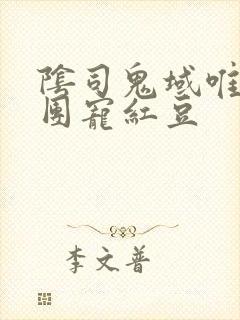 陰司鬼域唯
團寵紅豆
李文普